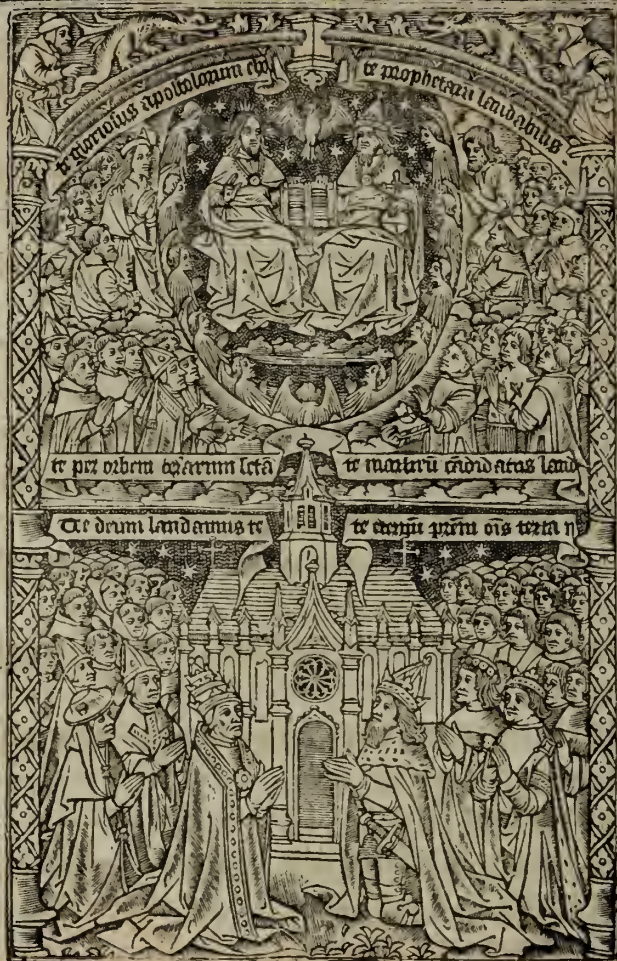 te gloriosus apostolorum cho
te prophetarū laudabilis.
te per orbem terrarum sctā
te martirū cādidatus laud
Te deum laudamus te
te eternū prēm oīs terra